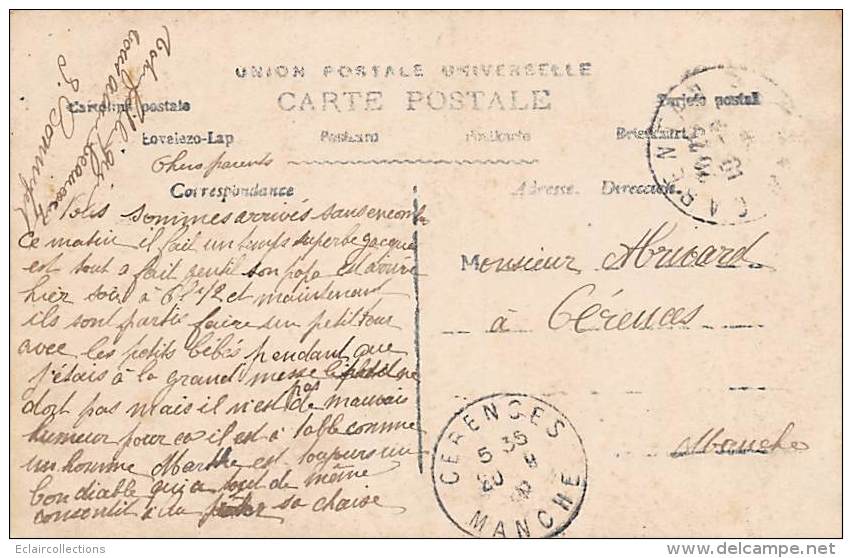 UNION POSTALE UNIVERSELLE
CARTE POSTALE
Cartolina postale
Tarjeta postal
Lovelezo-Lap
Postcard
Briefkaart
Chers parents
Correspondance
Adresse. Direccion.
Nous sommes arrivés sans encombre
ce matin il fait un temps superbe Jacques
est tout a fait gentil son papa est
hier soir à 6h 1/2 et maintenant
ils sont partis faire un petit tour
avec les petits bébés pendant que
j'étais à la grand messe le petit ne
dort pas mais il n'est pas de mauvais
humeur pour ça il est à table comme
un homme Marthe est toujours un
bon diable qui a tout de même
consenti à sa chaise
Votre fille qui
vous aime beaucoup
Monsieur
à Cérences
Manche
CERENCES
5 35
20
MANCHE
Eclaircollections
delcampe.net